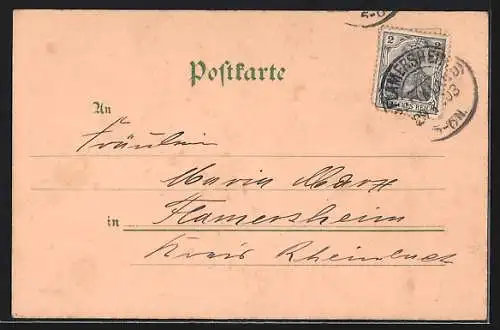 5-6
2 2
FLAMERSHEIM
03
5-6N.
Postkarte
An
Fräulein
Maria Marx
in Flamersheim
Kreis Rheinbach